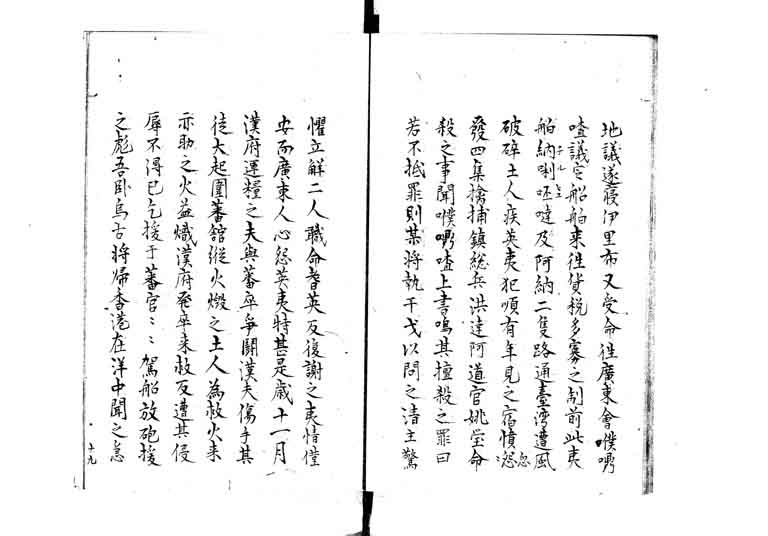 地議遂寢伊里布又受命往廣東會噗嘮
喳議定船舶来往貨税多寡之制前此夷
船納喇呸噠及阿納二隻路過臺湾遭風
破碎土人疾英夷犯順有年見之宿憤怨忽
發四集擒捕鎮総兵洪達阿道官姚莹命
殺之事聞噗嘮喳上書鳴其擅殺之罪曰
若不抵罪則某将執干戈以問之清主驚
懼立解二人職命耆英反復謝之夷情僅
安而廣東人心怨英夷特甚是歳十一月
漢府運糧之夫與蕃卒爭鬪漢夫傷手其
徒大起圍蕃舘縦火燬之土人為救火来
亦助之火益熾漢府発卒来救反遭其侵
辱不淂已乞援于蕃官〻〻駕船放砲援
之彪吾卧烏古将帰香港在洋中聞之急
十九